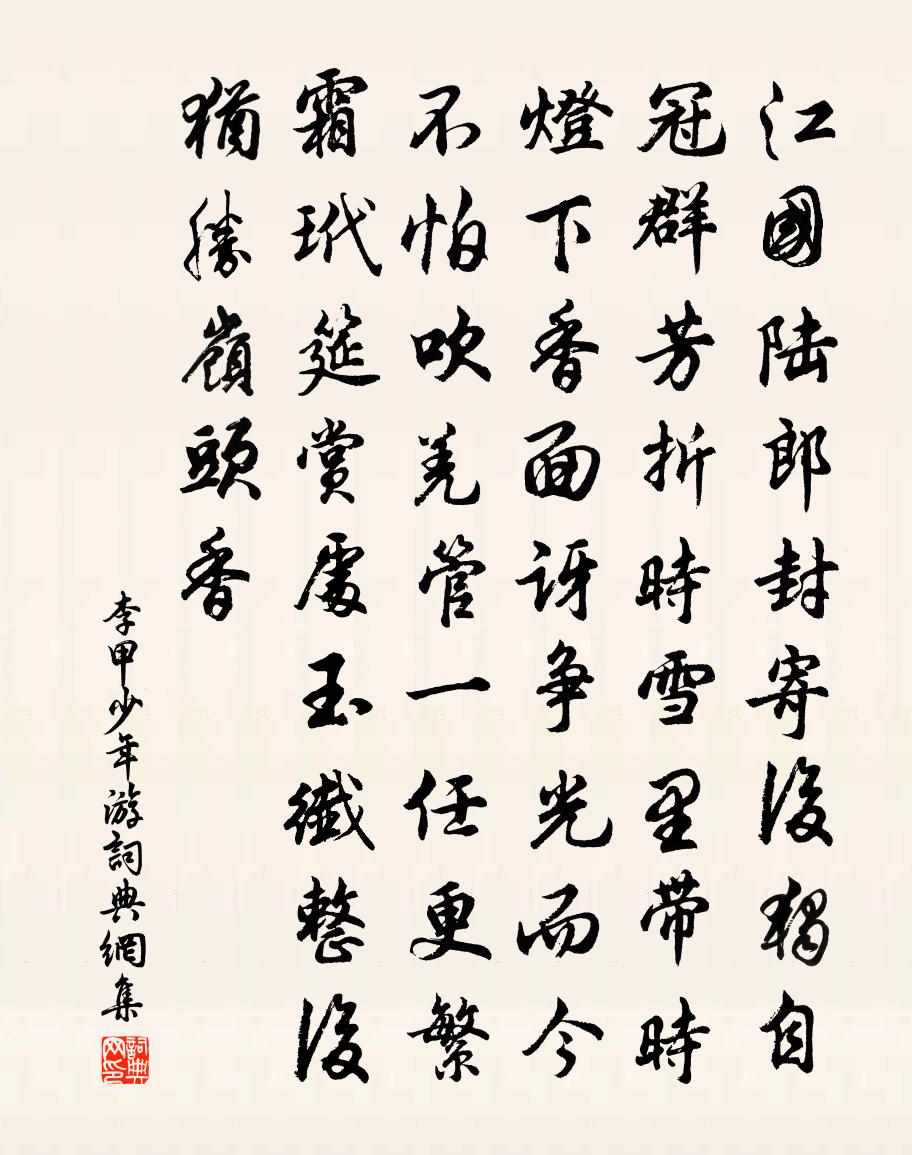 江國陆郎封寄後獨自
冠群芳折時雪里帶時
燈下香面讶争光而今
不怕吹羌管一任更繁
霜玳筵賞處玉纖整後
猶勝嶺頭香
李甲少年游詞典網集
詞典网印